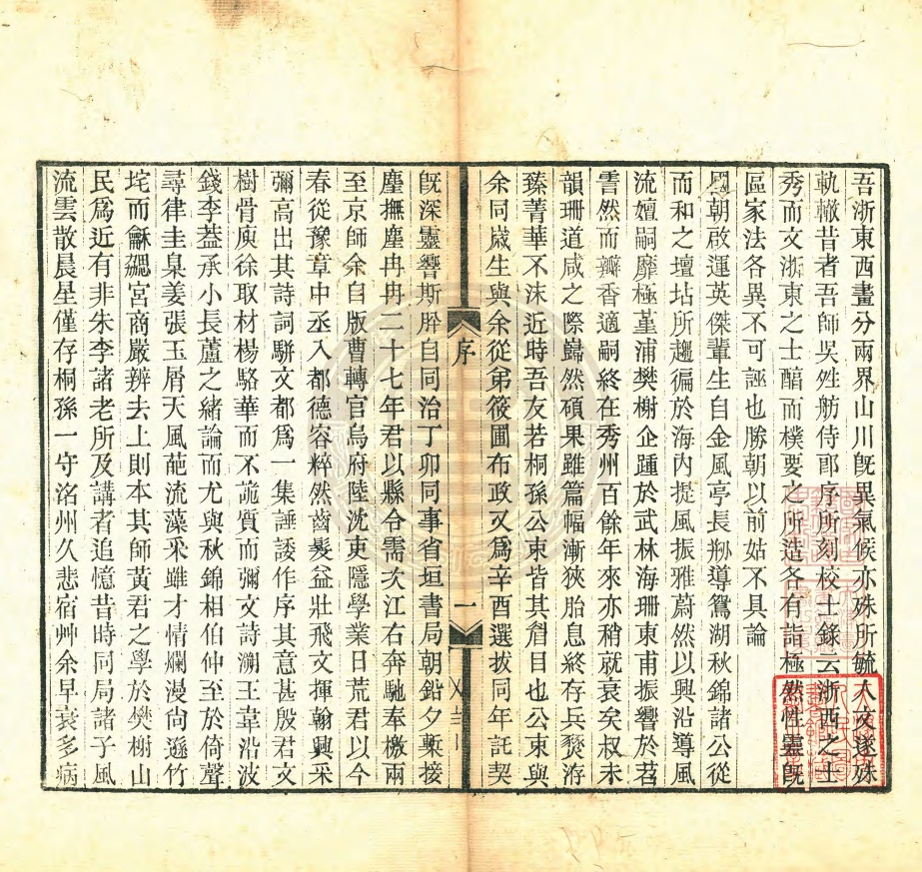 吾浙東西畫分兩界山川旣異氣候亦殊所毓人文遂殊
軌轍昔者吾師吳姓舫侍郎序所刻校士錄云浙西之士
秀而文浙東之士醇而樸要之所造各有詣極然性靈旣
區家法各異不可誣也勝朝以前姑不具論
國朝啟運英傑輩生自金風亭長剏導鴛湖秋錦諸公從
而和之壇坫所趨徧於海内提風振雅蔚然以興沿導風
流嬗嗣靡極堇浦樊榭企踵於武林海珊東甫振響於苕
霅然而瓣香適嗣終在秀州百餘年來亦稍就衰矣叔未
韻珊道咸之際巋然碩果雖篇幅漸狹胎息終存兵燹洊
臻菁華不沫近時吾友若桐孫公束皆其眉目也公束與
余同歲生與余從弟筱圃布政又爲辛酉選拔同年託契
序
一
旣深靈響斯肸自同治丁卯同事省垣書局朝鉛夕槧接
塵撫塵冉冉二十七年君以縣令需次江右奔馳奉檄兩
至京師余自版曹轉官烏府陸沈吏隱學業日荒君以今
春從豫章中丞入都德容粹然齒髮益壯飛文揮翰興采
彌高出其詩詞駢文都爲一集諈諉作序其意甚殷君文
樹骨庾徐取材楊駱華而不詭質而彌文詩溯王韋沿波
錢李葢承小長蘆之緒論而尤與秋錦相伯仲至於倚聲
尋律圭臬姜張玉屑天風葩流藻采雖才情爛漫尙遜竹
垞而龢勰宮商嚴辨去上則本其師黃君之學於樊榭山
民爲近有非朱李諸老所及講者追憶昔時同局諸子風
流雲散晨星僅存桐孫一守洺州久悲宿艸余早衰多病